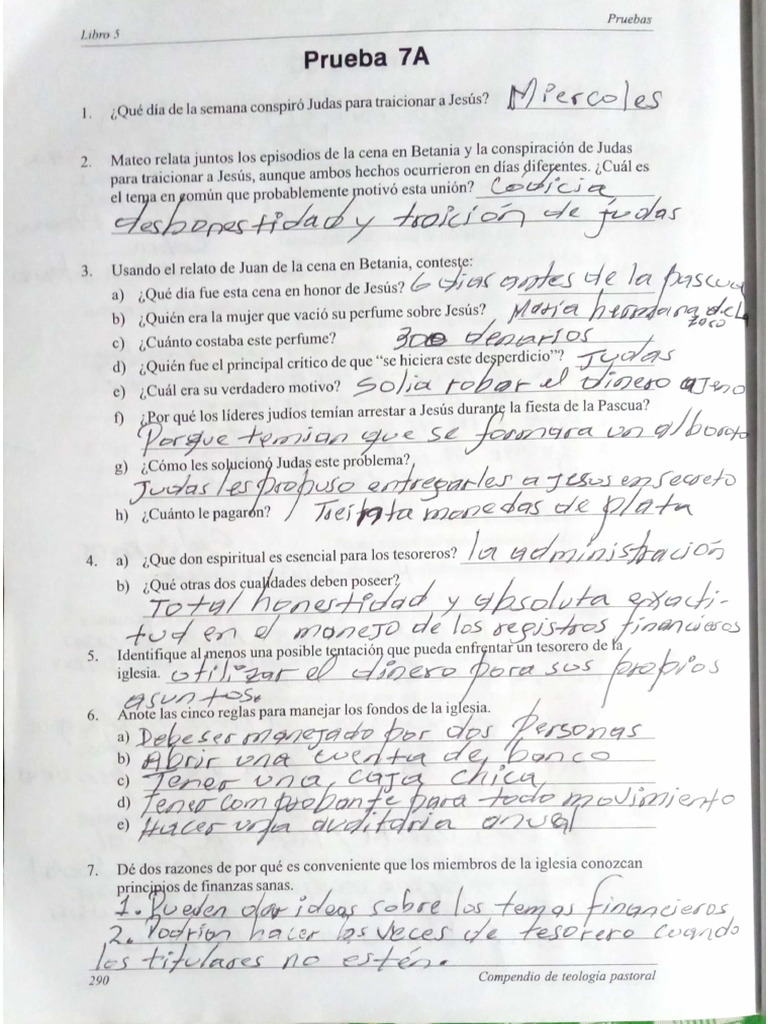 Libro 5 Pruebas
Prueba 7A
1. ¿Qué día de la semana conspiró Judas para traicionar a Jesús? Miercoles
2. Mateo relata juntos los episodios de la cena en Betania y la conspiración de Judas
para traicionar a Jesús, aunque ambos hechos ocurrieron en días diferentes. ¿Cuál es
el tema en común que probablemente motivó esta unión? Codicia
deshonestidad y traición de judas
3. Usando el relato de Juan de la cena en Betania, conteste:
a) ¿Qué día fue esta cena en honor de Jesús? 6 dias antes de la pascua
b) ¿Quién era la mujer que vació su perfume sobre Jesús? María hermana de la
zaro
c) ¿Cuánto costaba este perfume? 300 denarios
d) ¿Quién fue el principal crítico de que “se hiciera este desperdicio”? Judas
e) ¿Cuál era su verdadero motivo? Solia robar el dinero ajeno
f) ¿Por qué los líderes judíos temían arrestar a Jesús durante la fiesta de la Pascua?
Porque temian que se formara un alboroto
g) ¿Cómo les solucionó Judas este problema?
Judas les propuso entregarles a Jesus en secreto
h) ¿Cuánto le pagaron? Treintata monedas de plata
4. a) ¿Que don espiritual es esencial para los tesoreros? la administración
b) ¿Qué otras dos cualidades deben poseer?
Total honestidad y absoluta exacti-
tud en el manejo de los registros financieros
5. Identifique al menos una posible tentación que pueda enfrentar un tesorero de la
iglesia. utilizar el dinero para sus propios
asuntos.
6. Anote las cinco reglas para manejar los fondos de la iglesia.
a) Debe ser manejado por dos personas
b) Abrir una cuenta de banco
c) Tener una caja chica
d) Tener comprobante para todo movimiento
e) Hacer una auditoria anual
7. Dé dos razones de por qué es conveniente que los miembros de la iglesia conozcan
principios de finanzas sanas.
1. Pueden dar ideas sobre los temas financieros
2. Podrían hacer las veces de tesorero cuando
los titulares no estén.
290 Compendio de teología pastoral